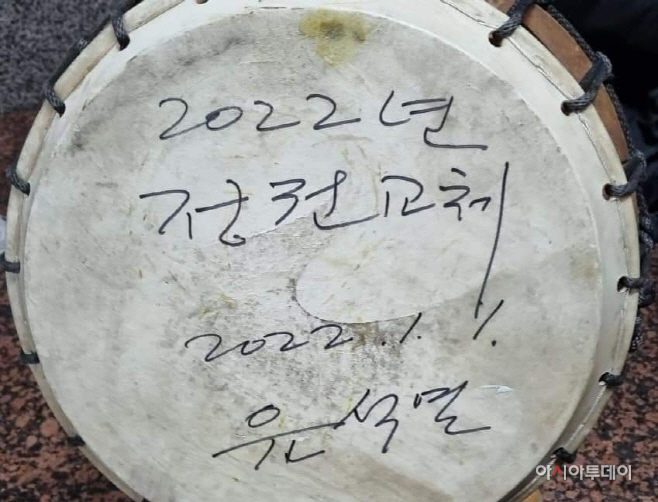 2022년
정권교체
2022.1.1.
윤석열
아시아투데이